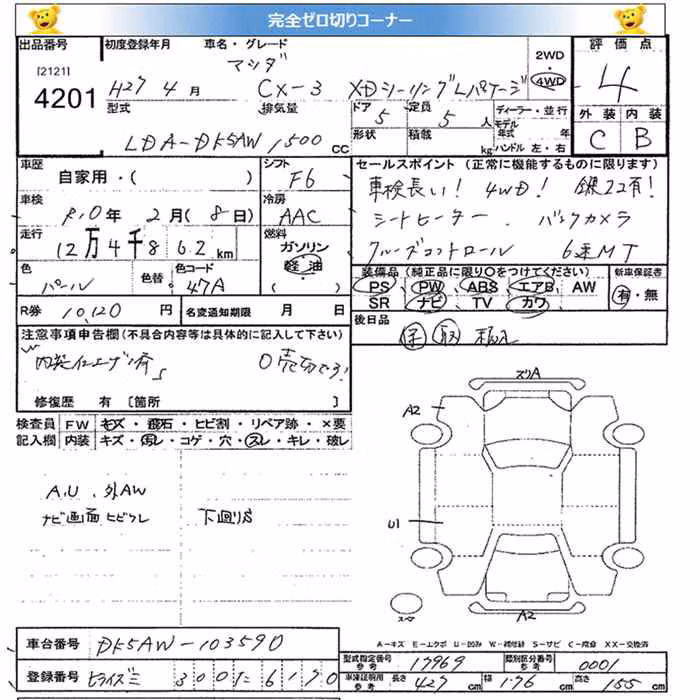 完全ゼロ切りコーナー
出品番号 初度登録年月 車名・グレード 評価点
[2121]
4201
マツダ
H27 4月 CX-3 XDツーリングLパケージ 2WD・4WD 4
型式 排気量 ドア 5 定員 5人 ディーラー・並行
モデル年式 年
LDA-DK5AW 1500cc 形状 積載 kg ハンドル 左・右
外装 内装
C B
車歴 自家用・( ) シフト F6
車検 R10年2月(8日) 冷房 AAC
走行 12万4千862km 燃料 ガソリン・軽油 ( )
色 パール 色替 色コード 47A
R券 10,120円 名変通知期限 月 日
セールスポイント(正常に機能するものに限ります)
車検長い! 4WD! 鍵2コ有!
シートヒーター バックカメラ
クルーズコントロール 6速MT
装備品(純正品に限り○をつけてください) 新車保証書
PS PW ABS エアB AW 有・無
SR ナビ TV カワ
後日品
保 取
注意事項申告欄(不具合内容等は具体的に記入して下さい)
内装仕上げ済 0売切です!
修復歴 有 [箇所 ]
検査員記入欄
FW キズ・飛石・ヒビ割・リペア跡・×要
内装 キズ・汚レ・コゲ・穴・スレ・キレ・破レ
A.U、外AW
ナビ画面ヒビワレ 下廻りS
ズリA
A2
U1
スペア
A2
A-キズ E-エクボ U-凹み W-補修跡 S-サビ C-腐食 XX-交換済
車台番号 DK5AW-103590
登録番号 ヒライズミ 300 に 6170
型式指定番号 参考 17969 類別区分番号 参考 0001
車庫証明用 参考 長さ 427cm 幅 176cm 高さ 155cm